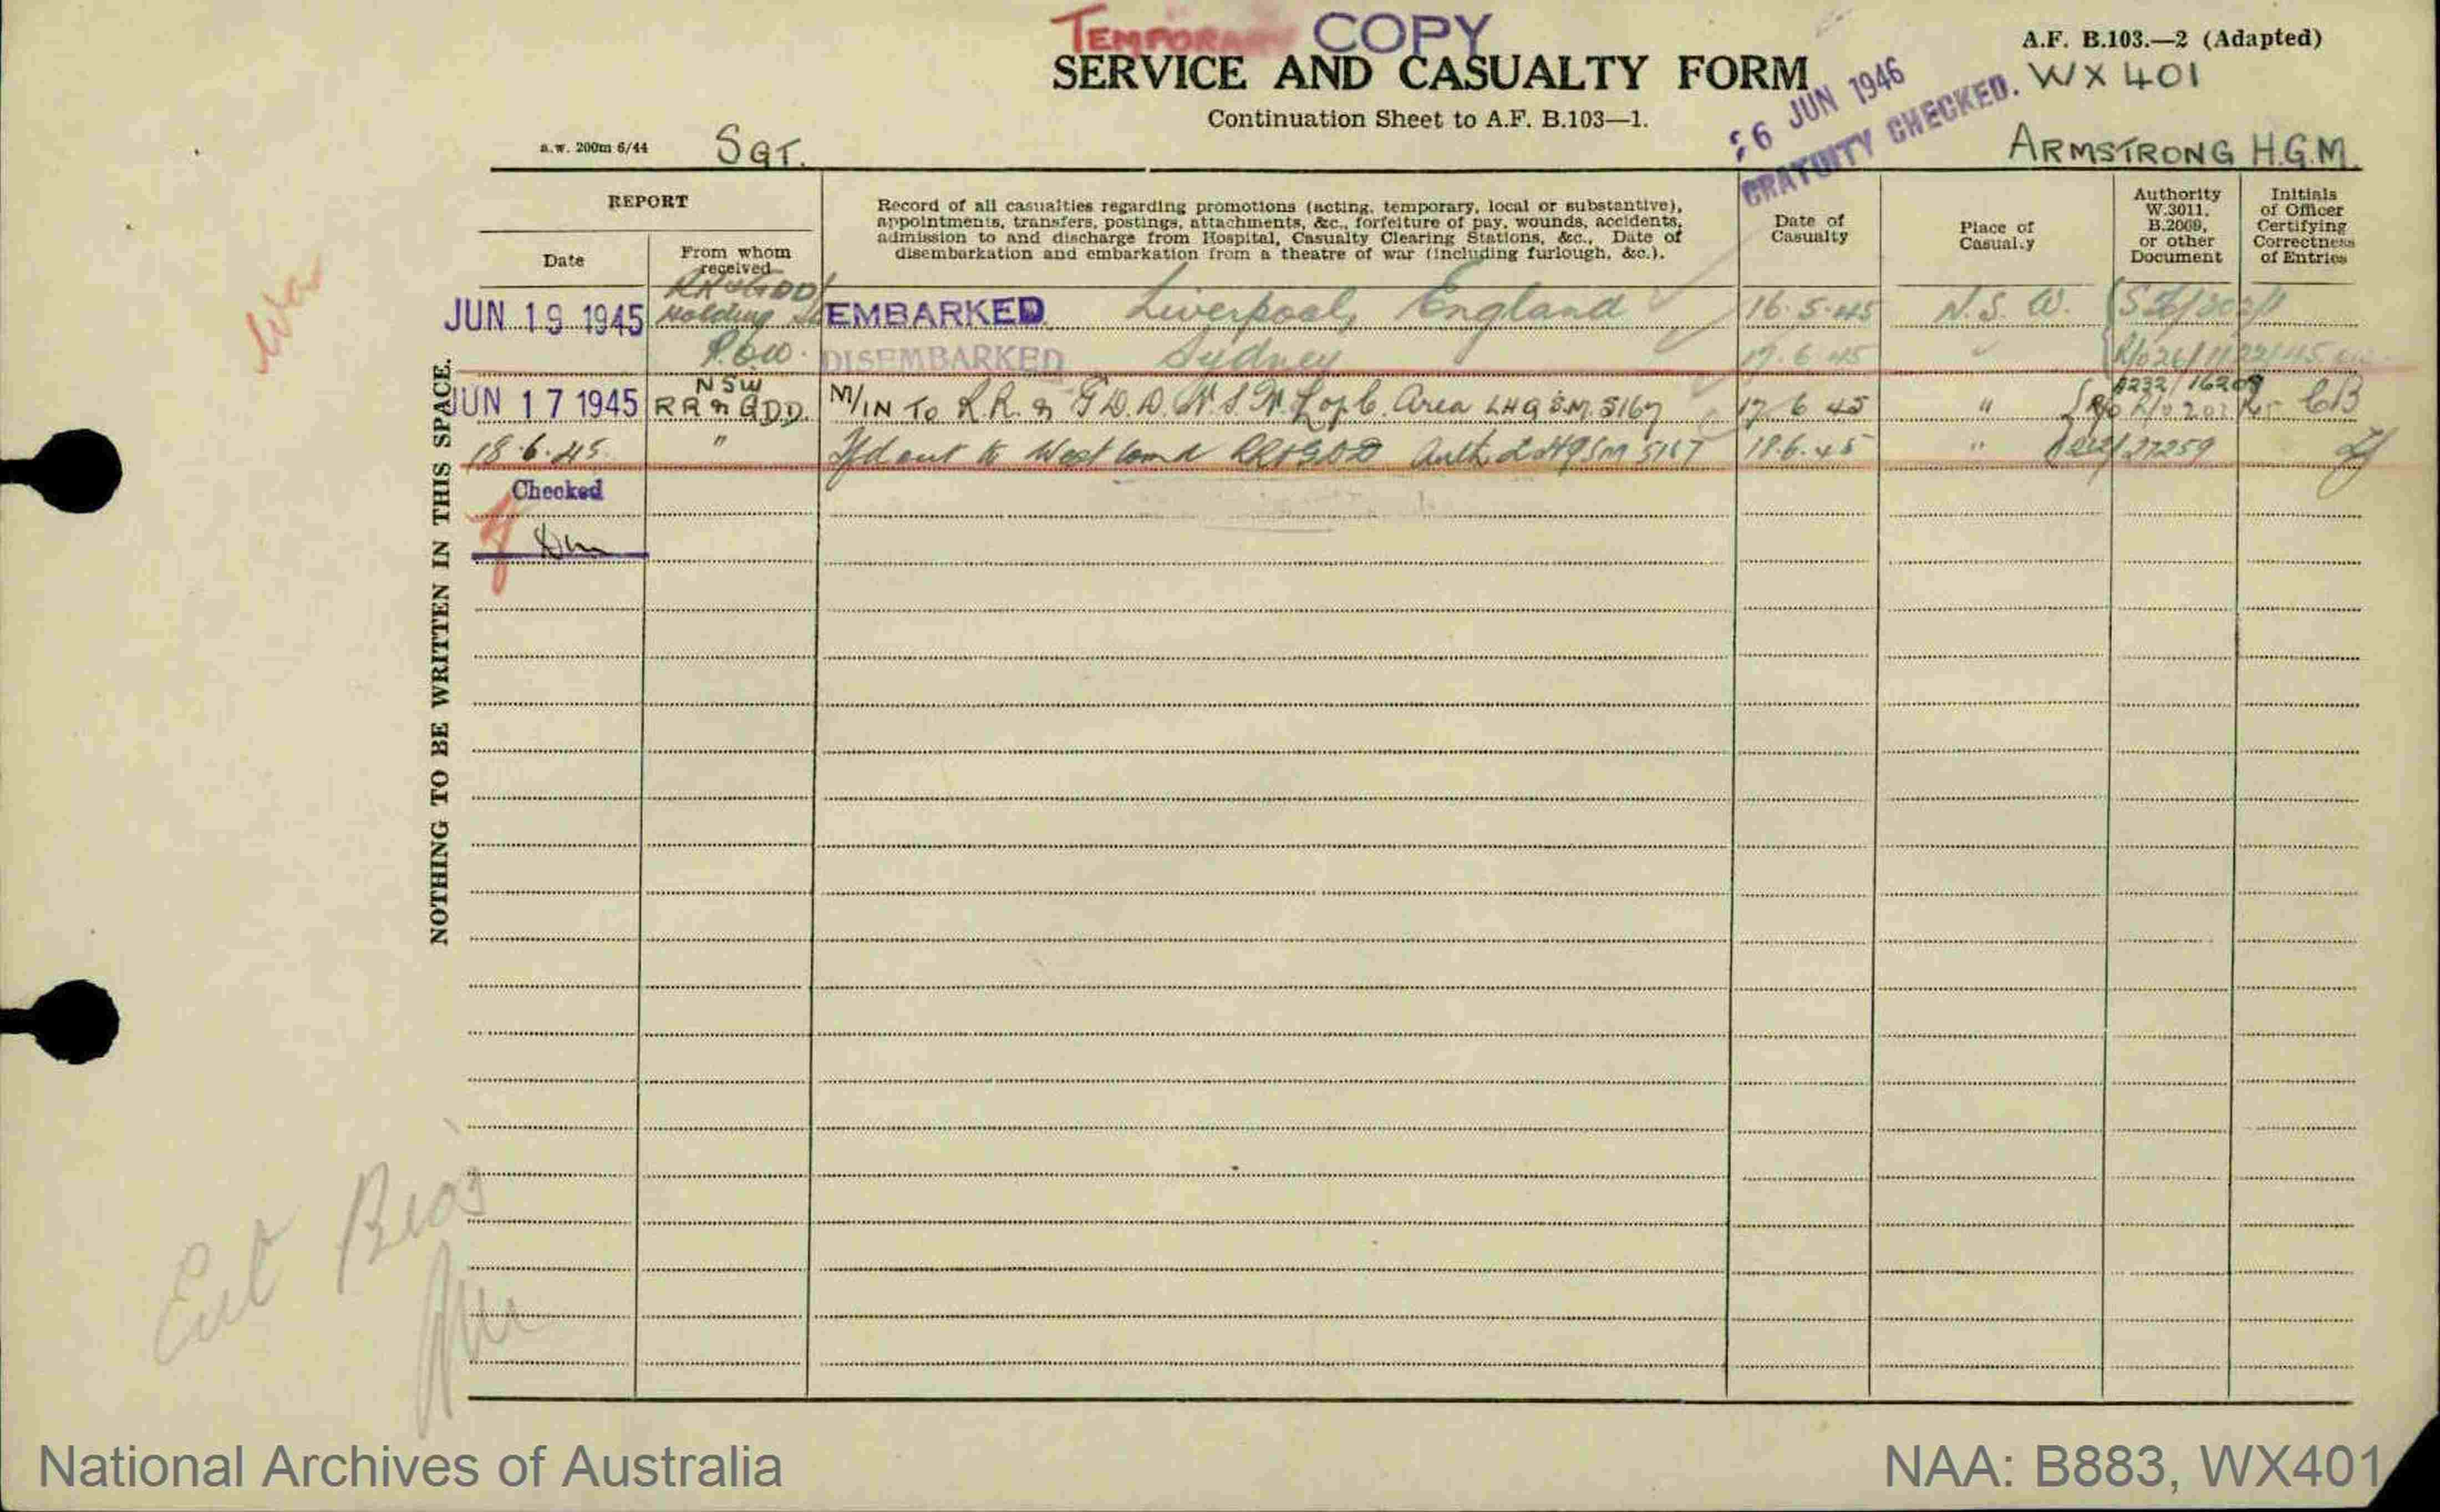 TEMPORARY COPY
A.F. B.103.—2 (Adapted)
SERVICE AND CASUALTY FORM
WX 401
Continuation Sheet to A.F. B.103—1.
26 JUN 1946
GRATUITY CHECKED.
a.w. 200m 6/44
SGT.
ARMSTRONG H.G.M.
REPORT
Date
From whom received
Record of all casualties regarding promotions (acting, temporary, local or substantive),
appointments, transfers, postings, attachments, &c., forfeiture of pay, wounds, accidents,
admission to and discharge from Hospital, Casualty Clearing Stations, &c., Date of
disembarkation and embarkation from a theatre of war (including furlough, &c.).
Date of Casualty
Place of Casualty
Authority W.3011, B.2069, or other Document
Initials of Officer Certifying Correctness of Entries
JUN 19 1945 Holding EMBARKED Liverpool, England 16.5.45 N.S.W.
P.O.W. DISEMBARKED Sydney 17.6.45
JUN 17 1945 NSW RR & GDD. M/IN TO R.R. & G.D.D. N.S.W. L of C. Area LHQ S.M. 5167 17 6 45 " CB
18.6.45 " out to West Comd RR&GDD Auth LHQ SM 5167 18.6.45 " 27259
Checked
NOTHING TO BE WRITTEN IN THIS SPACE.
National Archives of Australia
NAA: B883, WX401